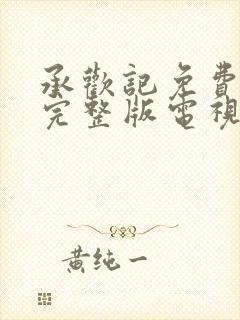 承歡記免費
完整版電視
黃纯一